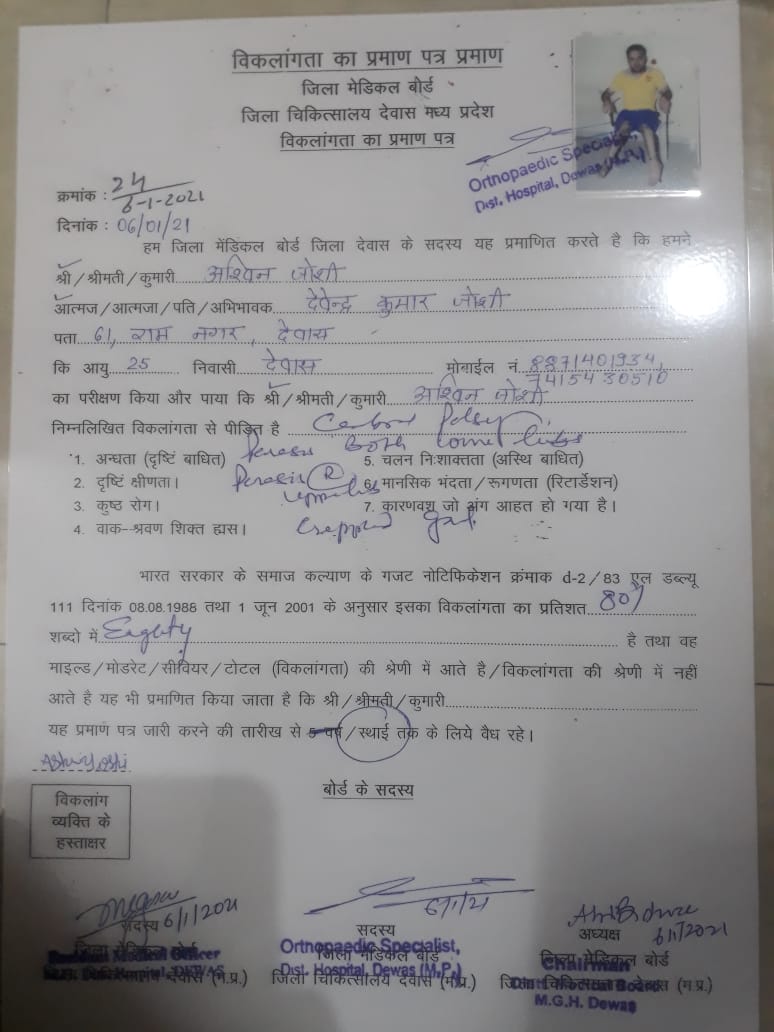 विकलांगता का प्रमाण पत्र प्रमाण
जिला मेडिकल बोर्ड
जिला चिकित्सालय देवास मध्य प्रदेश
विकलांगता का प्रमाण पत्र
Orthopaedic Specialist,
Dist. Hospital, Dewas (M.P.)
क्रमांक : 24
6-1-2021
दिनांक : 06/01/21
हम जिला मेंडिकल बोर्ड जिला देवास के सदस्य यह प्रमाणित करते है कि हमने
श्री/श्रीमती/कुमारी अश्विन जोशी
आत्मज/आत्मजा/पति/अभिभावक देवेन्द्र कुमार जोशी
पता 61, राम नगर, देवास
कि आयु 25 निवासी देवास मोबाईल नं. 8871401934,
7415430510
का परीक्षण किया और पाया कि श्री/श्रीमती/कुमारी अश्विन जोशी
निम्नलिखित विकलांगता से पीड़ित है
Both
1. अन्धता (दृष्टिं बाधित) 5. चलन निःशाक्तता (अस्थि बाधित)
2. दृष्टिं क्षीणता। 6. मानसिक भंदता/रूगणता (रिटार्डेशन)
3. कुष्ठ रोग। 7. कारणवश जो अंग आहत हो गया है।
4. वाक--श्रवण शिक्त ह्मस।
भारत सरकार के समाज कल्याण के गजट नोटिफिकेशन क्रंमाक d-2/83 एल डब्ल्यू
111 दिनांक 08.08.1988 तथा 1 जून 2001 के अनुसार इसका विकलांगता का प्रतिशत 80%
शब्दो में Eighty है तथा वह
माइल्ड/मोडरेट/सीवियर/टोटल (विकलांगता) की श्रेणी में आते है/विकलांगता की श्रेणी में नहीं
आते है यह भी प्रमाणित किया जाता है कि श्री/श्रीमती/कुमारी
यह प्रमाण पत्र जारी करने की तारीख से 5 वर्ष/स्थाई तक के लिये वैध रहे।
बोर्ड के सदस्य
विकलांग
व्यक्ति के
हस्ताक्षर
6/1/2021
सदस्य
जिला मेडिकल बोर्ड
जिला चिकित्सालय देवास (म.प्र.)
6/1/21
सदस्य
Orthopaedic Specialist,
जिला मेडिकल बोर्ड
Dist. Hospital, Dewas (M.P.)
जिला चिकित्सालय देवास (म.प्र.)
6/1/2021
अध्यक्ष
जिला मेडिकल बोर्ड
Chairman
जिला चिकित्सालय देवास (म.प्र.)
M.G.H. Dewas